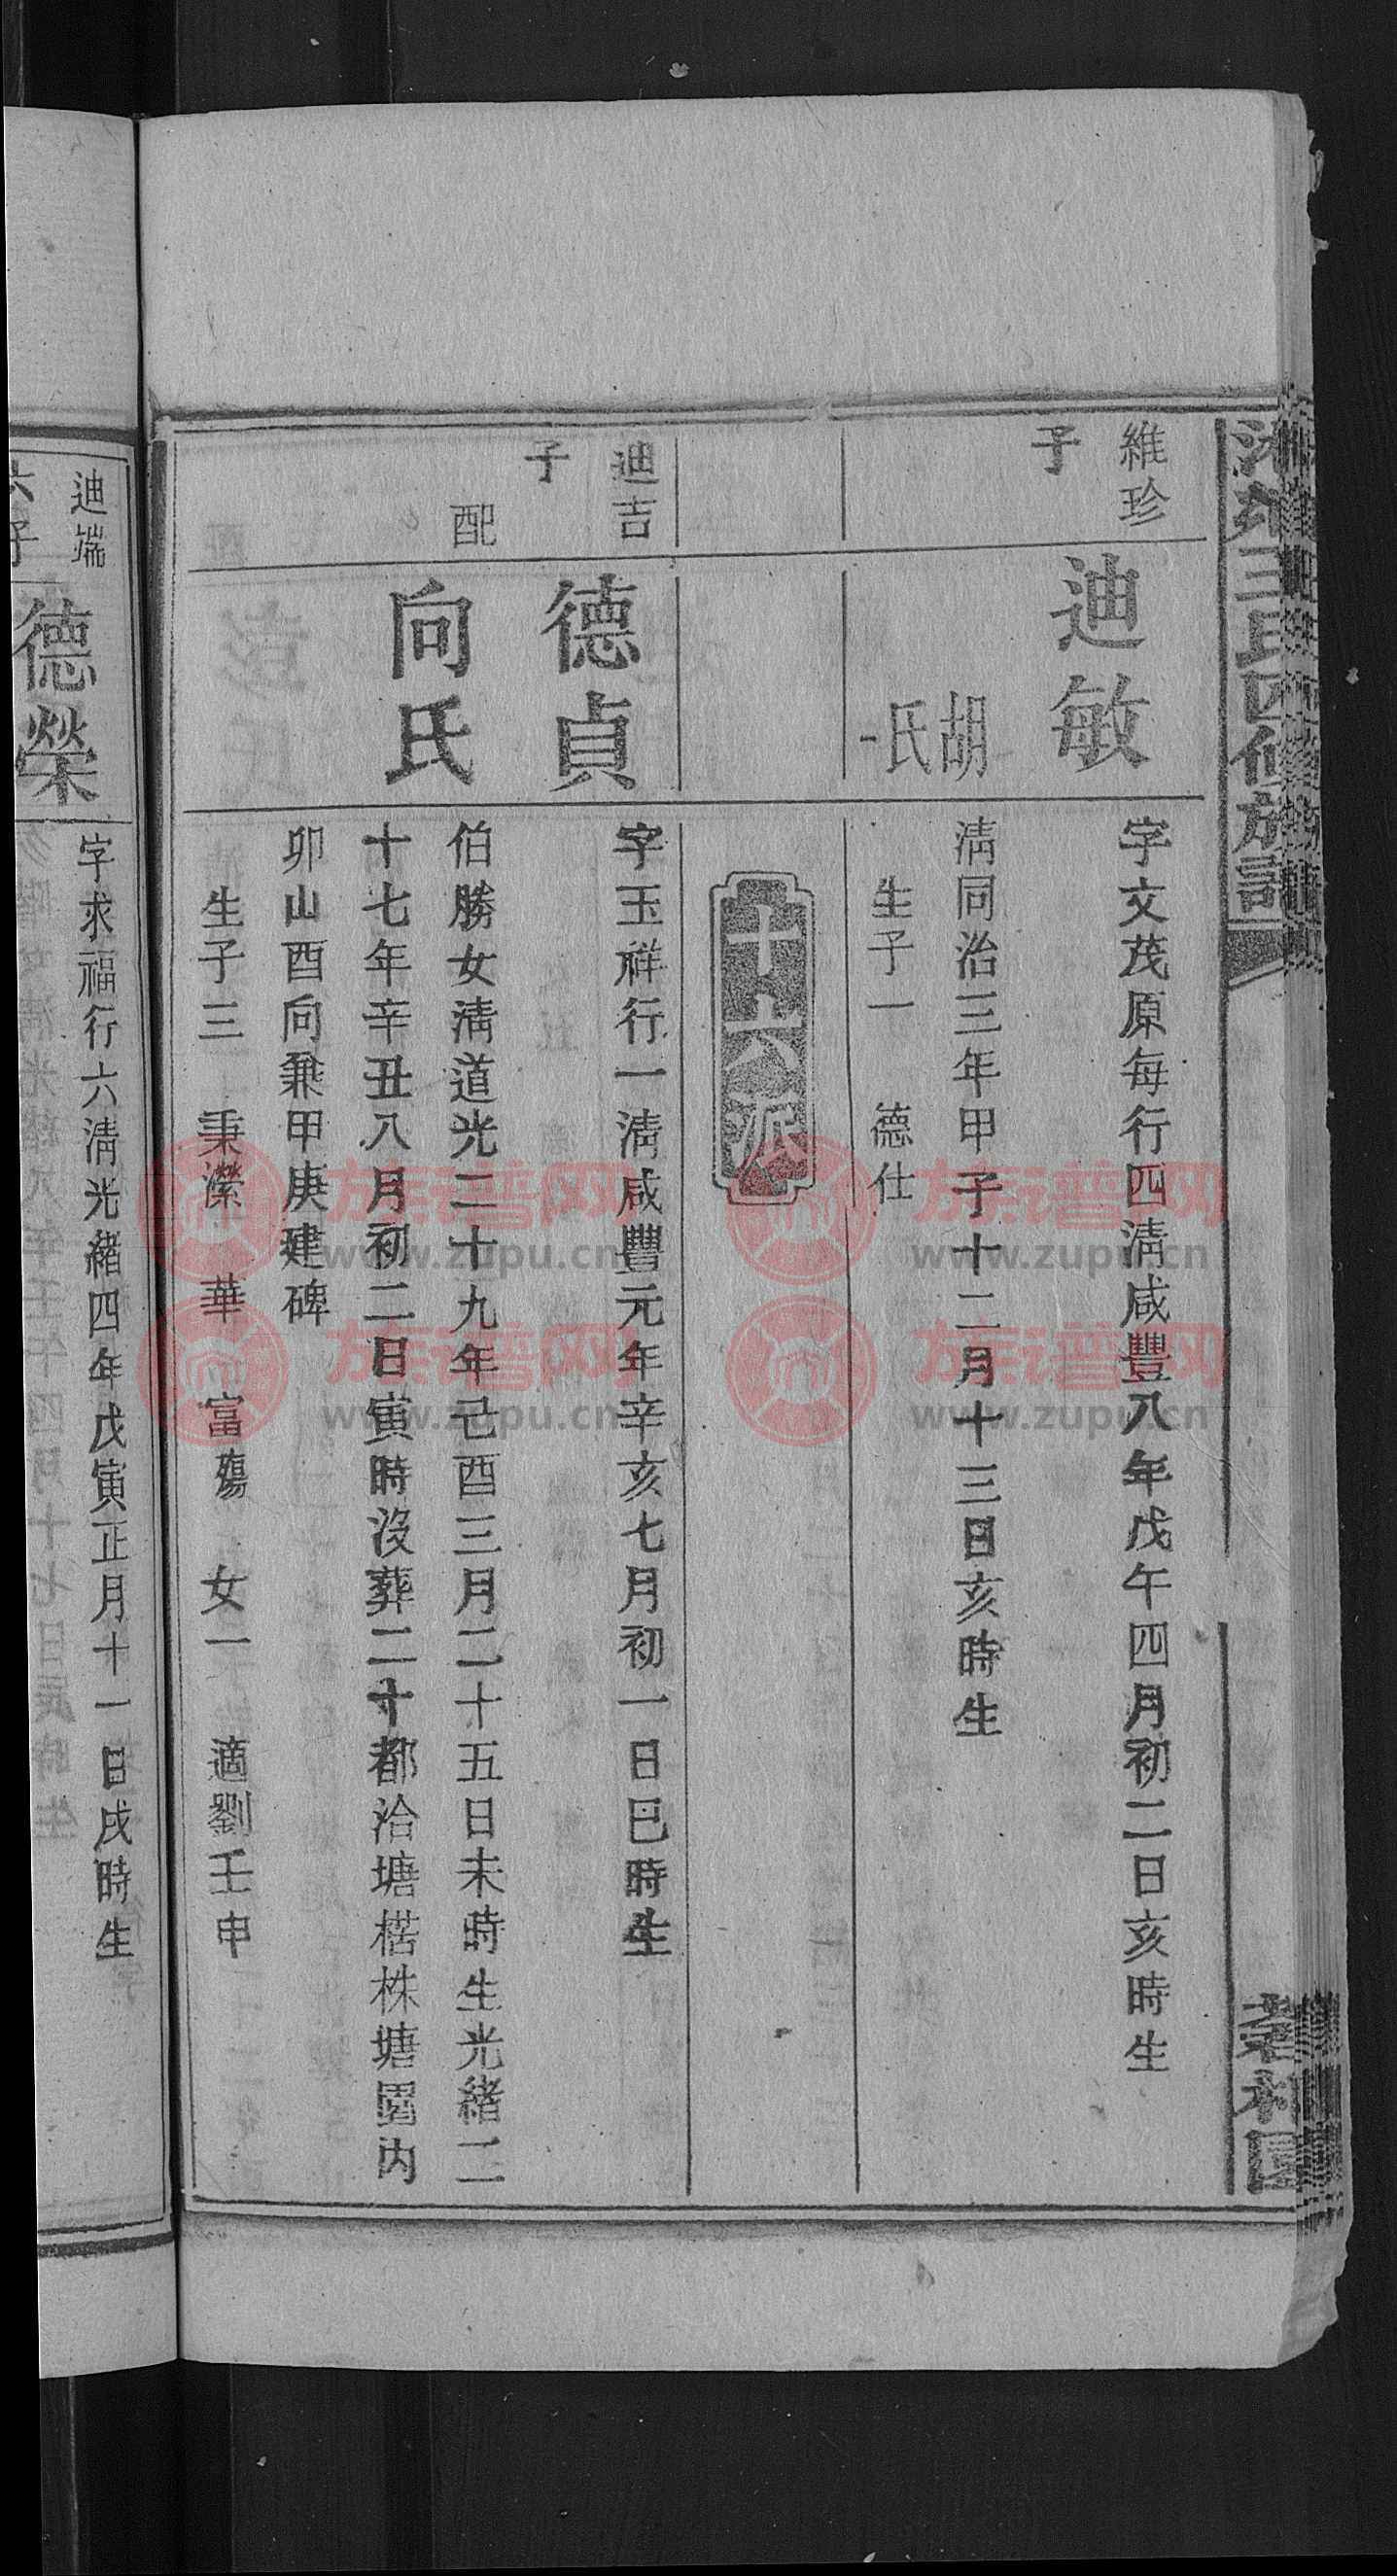 維珍
子
迪敏
字文茂原每行四淸咸豐八年戊午四月初二日亥時生
胡氏
淸同治三年甲子十二月十三日亥時生
生子一 德仕
十六派
迪吉
子
德貞
字玉祥行一淸咸豐元年辛亥七月初一日巳時生
配
向氏
伯勝女淸道光二十九年己酉三月二十五日未時生光緒二
十七年辛丑八月初二日寅時沒葬二十都洽塘楛株塘園內
卯山酉向兼甲庚建碑
生子三 秉瀠 華 富殤 女一 適劉壬申
迪端
六子
德榮
字求福行六淸光緒四年戊寅正月十一日戌時生
族谱网
www.zupu.cn
族谱网
www.zupu.cn
族谱网
www.zupu.cn
族谱网
www.zupu.cn